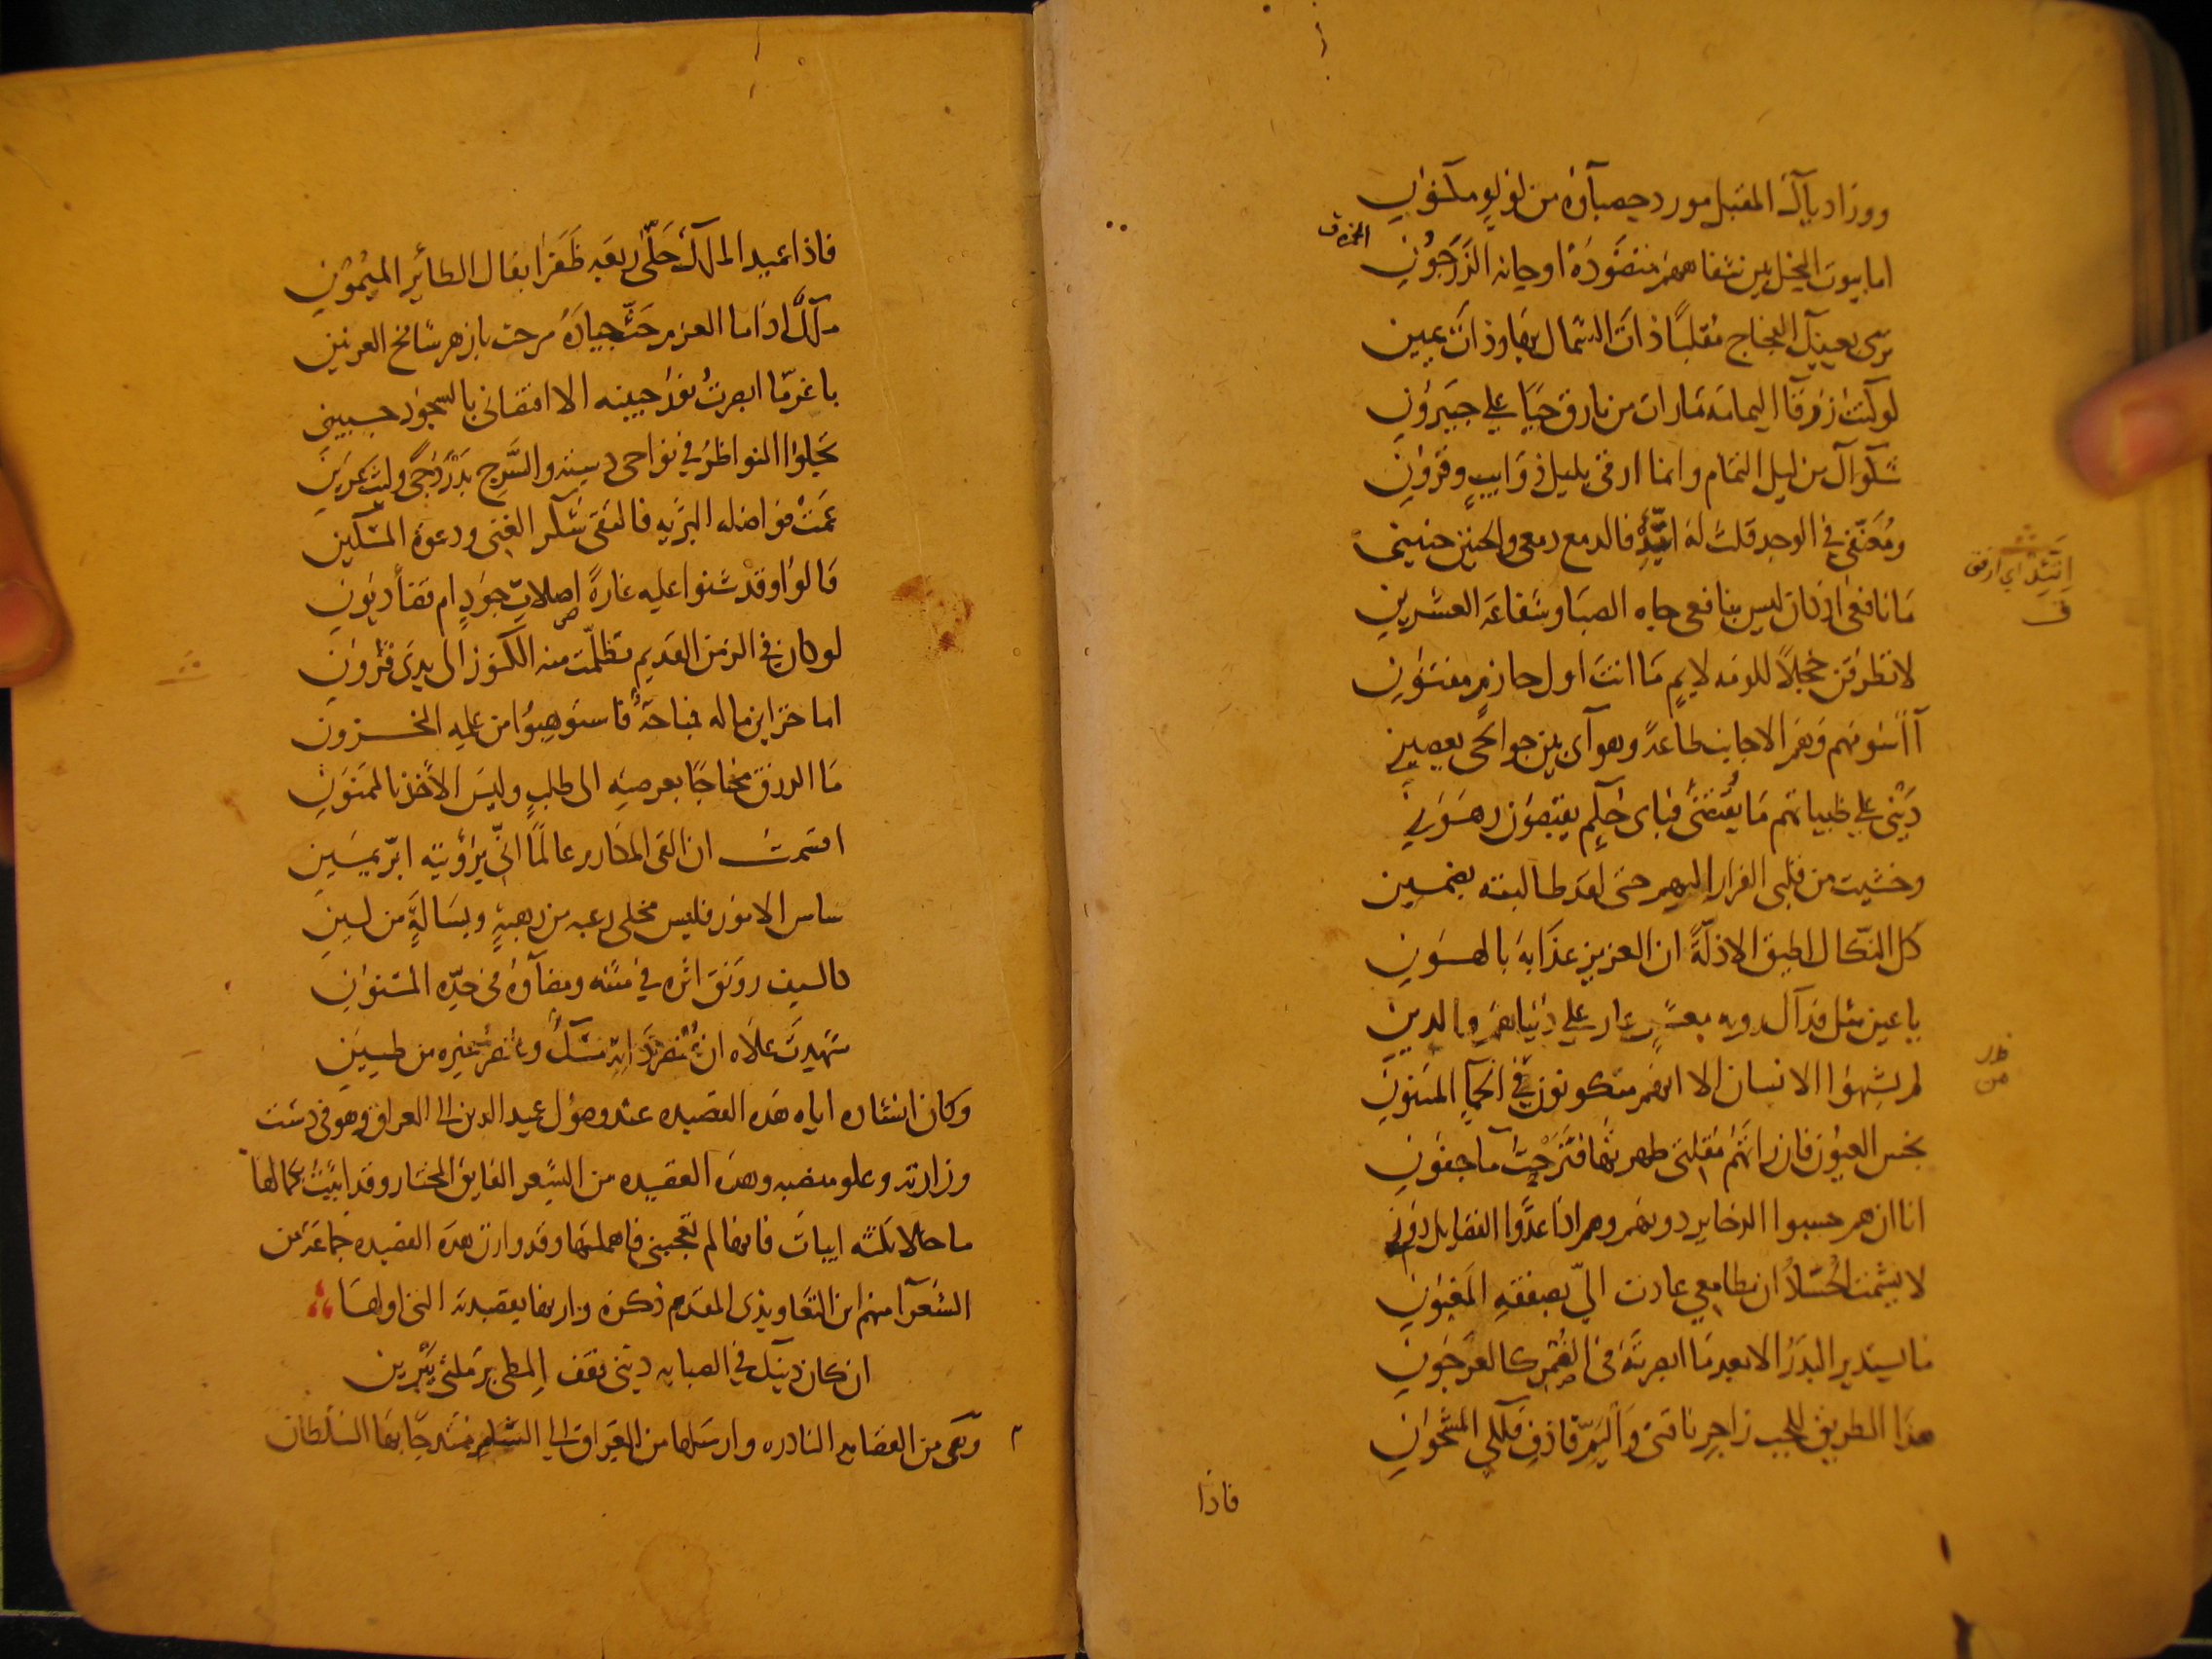 ووراد ياك المقبل مورد حصبآوه من لولو مكنون
اما بيوت النحل بين شفاههم منضودة او حانه الزرجون
الخمر ق
ترى بعينك الفجاج مقلبا ذات الشمال بها وذات يمين
لو كنت زرقآ اليمامة مارات من بارق حيا على جيرون
شكواك من ليل التمام وانما ارقى بليل ذوايب وقرون
ومعنفى في الوجد قلت له اتئد فالدمع دمعى والحنين حنينى
اتئد اي ارفق
ف
ما نافعى اذ كان ليس بنافعى جاه الصبا وشفاعة العشرين
لا تطرقن خجلا للومه لايم ما انت اول حازم مفتون
أأسومهم وهم الاجانب طاعة وهوآى بين جوانحى يعصينى
دينى على ظبياتهم ما يقتضى فباى حكم يقتضون رهونى
وخشيت من قلبى الفرار اليهم حتى لقد طالبته بضمين
كل النكال اطيق الا ذلة ان العزيز عذابه بالهون
يا عين مثل قذآك رويه معشر عار على دنياهم والدين
لم يشبهوا الانسان الا انهم متكونون في الحمآ المسنون
نجس العيون فان راتهم مقلتى طهرتها فنزحت مآ جفونى
انا ان هم حسبوا الذخاير دونهم وهم اذا عدوا الفضايل دونى
لا يشمت الحساد ان مطامعى عادت الي بصفقه المغبون
ما يستدير البدر الا بعد ما ابصرته فى الضمر كالعرجون
هذا الطريق اللحب زاجر ناقتى واليم قاذف فلكى المشحون
فاذا
فاذا عميد الملك حلى ربعه ظفرا بفال الطائر الميمون
ملك اذا ما العزم حث جياده مرحت بازهر شامخ العرنين
يا عزما ابصرت نور جبينه الا اقتضانى بالسجود جبينى
تجلوا النواظر في نواحى دسته والسرج بدر دجى وليث عرين
عمت فواضله البريه فالتقى شكر الغنى ودعوة المسكين
قالوا وقد شنوا عليه غارة اصلات جود ام قضأ ديون
لو كان فى الزمن القديم تظلمت منه الكنوز الى يدى قارون
اما خزاين ماله فمباحة فاستوهبوا من علمه المخزون
ما الرزق محتاجا بعرصته الى طلب وليس الاخذ بالممنون
اقسمت ان القى المكارم عالما انى برؤيته ابر يمين
ساس الامور فليس يخلى رغبه من رهبة وبسالة من لين
كالسيف رونق اثره في متنه ومضآوه فى حده المسنون
شهدت علاه ان عنصر ذاته مسك وعنصر غيره من طين
وكان انشاده اياه هذه القصيده عند وصول عميد الدين الى العراق وهو فى دست
وزارته وعلو منصبه وهذه القصيده من الشعر الفايق المختار وقد اتيت بكمالها
ما خلا ثلثه ابيات فانها لم تعجبنى فاهملتها وقد وازن هذه القصيده جماعة من
الشعرآ منهم ابن التعاويذى المقدم ذكره وازنها بقصيدته التى اولها
ان كان دينك في الصبابه دينى فقف المطى برملتى يبرين
وهى من القصايد النادره وارسلها من العراق الى الشام ممتدحا بها السلطان